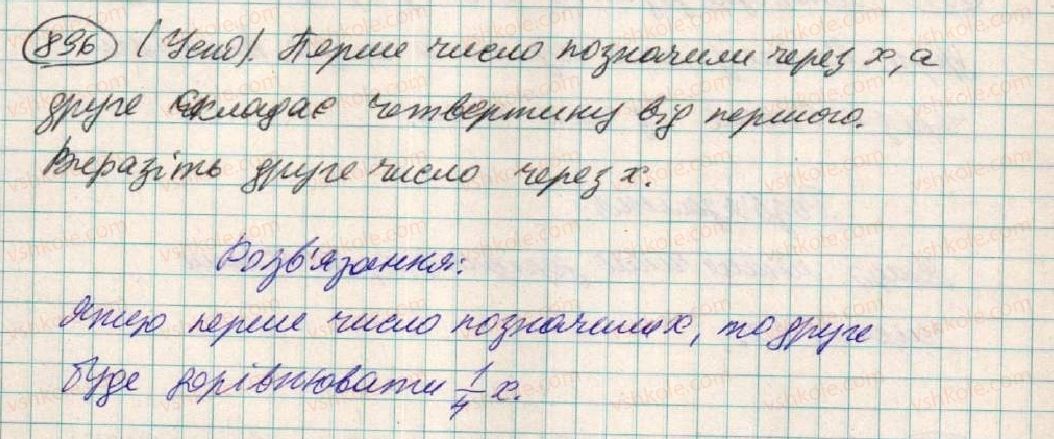 896 (Усно). Перше число позначили через x, а
друге складає четвертину від першого.
Виразіть друге число через x.
Розв'язання:
Якщо перше число позначили x, то друге
буде дорівнювати 1/4 x.